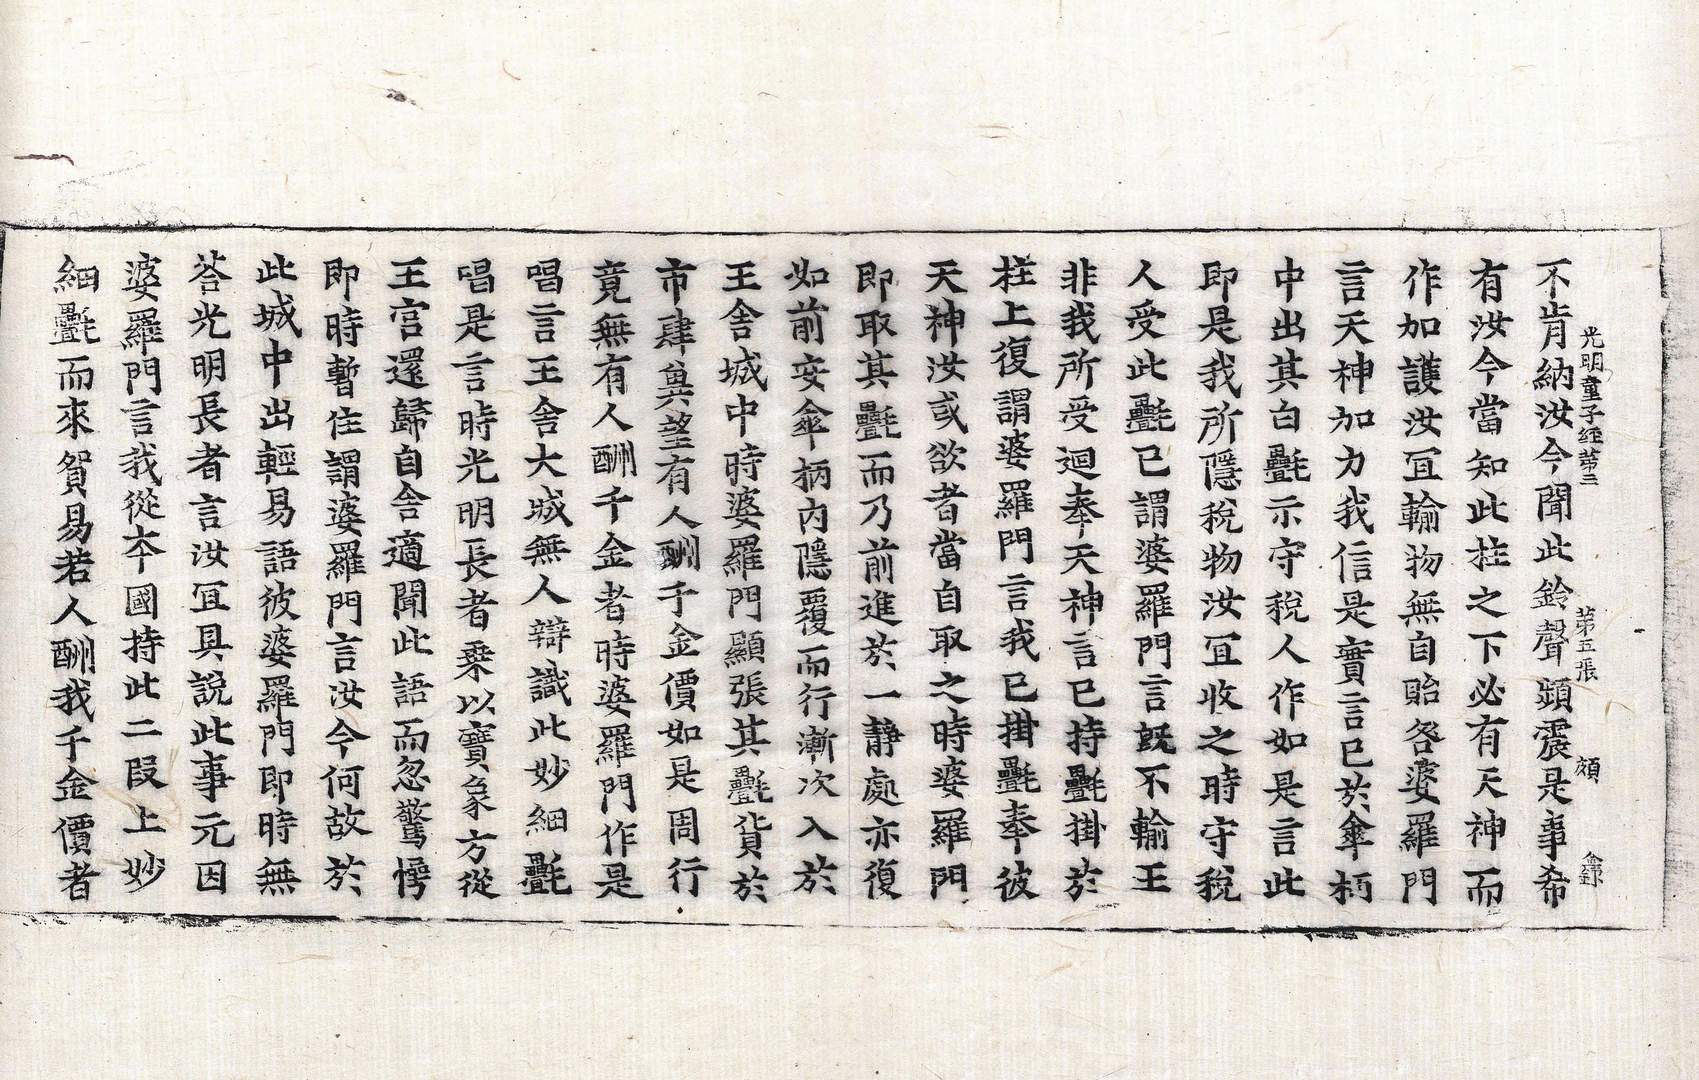 光明童子經第三 第五張 頗 金録
不肯納汝今聞此鈴聲頻震是事希
有汝今當知此柱之下必有天神而
作加護汝冝輸物無自貽咎婆羅門
言天神加力我信是實言已於傘柄
中出其白㲲示守稅人作如是言此
即是我所隱稅物汝冝收之時守稅
人受此㲲已謂婆羅門言旣不輸王
非我所受迴奉天神言已持㲲掛於
柱上復謂婆羅門言我已掛㲲奉彼
天神汝或欲者當自取之時婆羅門
即取其㲲而乃前進於一靜處亦復
如前安傘柄內隱覆而行漸次入於
王舍城中時婆羅門顯張其㲲貨於
市肆兾望有人酬千金價如是周行
竟無有人酬千金者時婆羅門作是
唱言王舍大城無人辯識此妙細㲲
唱是言時光明長者乗以寶象方從
王宮還歸自舍適聞此語而忽驚愕
即時暫住謂婆羅門言汝今何故於
此城中出輕易語彼婆羅門即時無
荅光明長者言汝冝具說此事元因
婆羅門言我從夲國持此二段上妙
細㲲而來貿易若人酬我千金價者